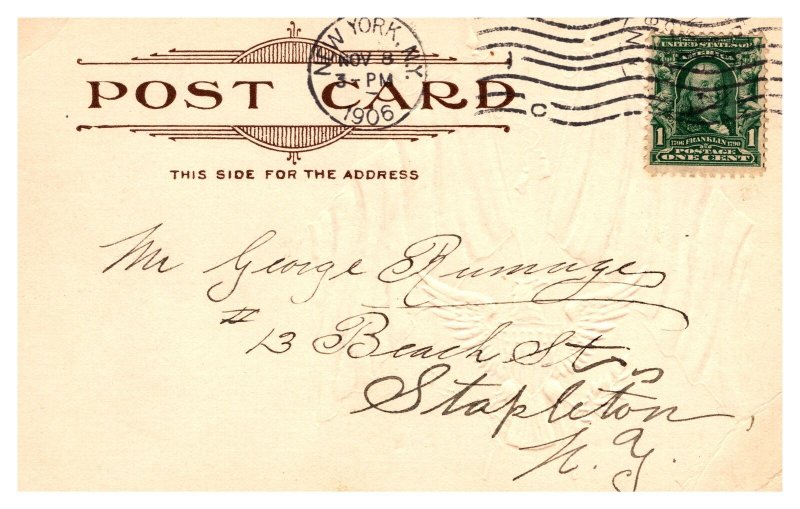 NEW YORK, N.Y.
NOV 8
3- PM
1906
C
POST CARD
THIS SIDE FOR THE ADDRESS
UNITED STATES OF
AMERICA
1 1
1706 FRANKLIN 1790
POSTAGE
ONE CENT
Mr George Rumage
# 13 Beach St
Stapleton
N.Y.